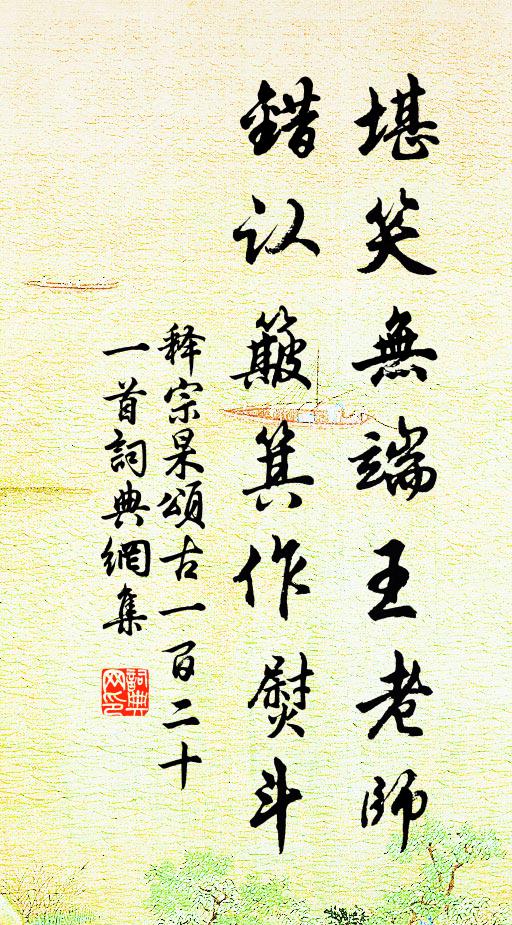 堪笑無端王老師
錯认簸箕作熨斗
释宗杲頌古一百二十
一首詞典網集
詞典网印